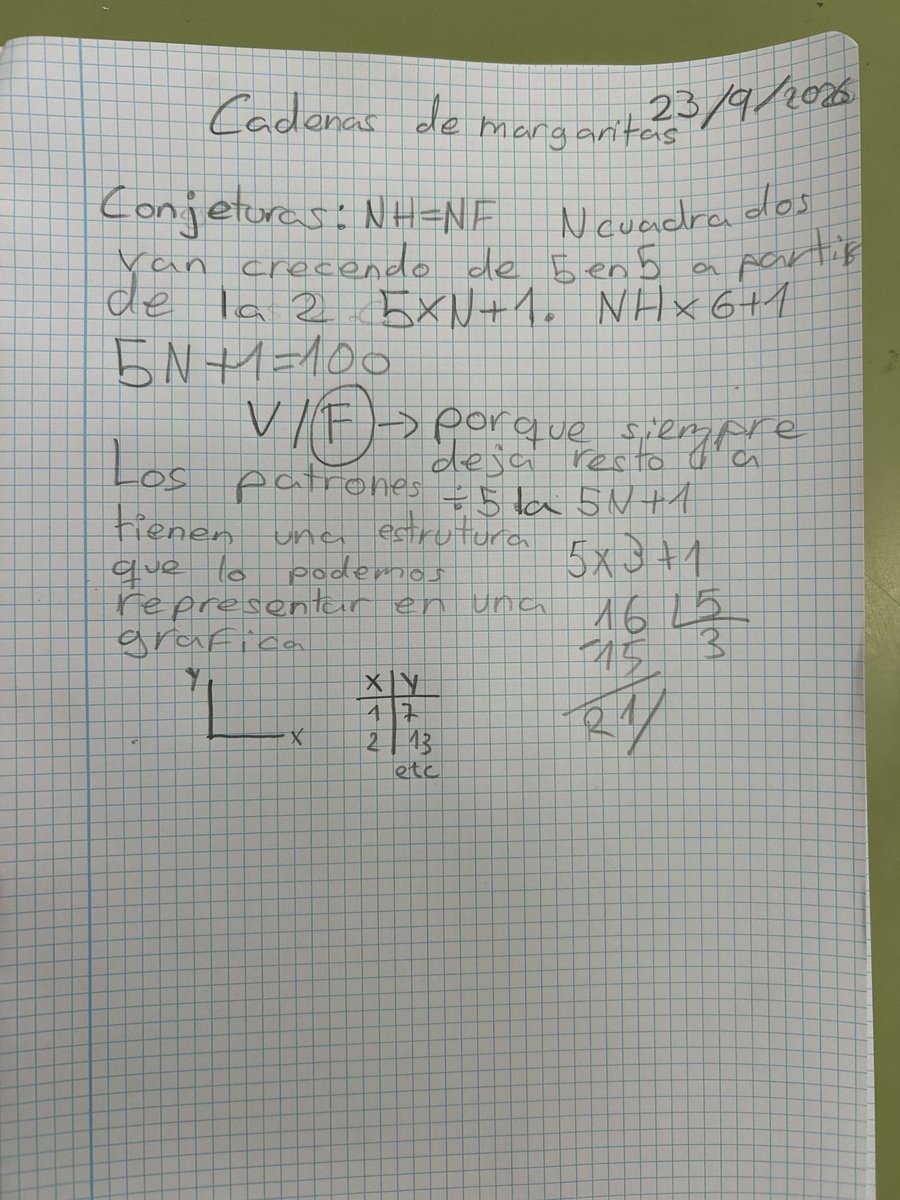 23/9/2026
Cadenas de margaritas
Conjeturas: NH=NF N cuadrados
van crecendo de 5 en 5 a partir
de la 2 5xN+1. NHx6+1
5N+1=100
V/F → porque siempre
deja resto 1 a
÷5 la 5N+1
Los patrones
tienen una estrutura
que lo podemos
representar en una
grafica
5x3+1
16 5
-15 3
R1/
Y
X
X Y
1 7
2 13
etc